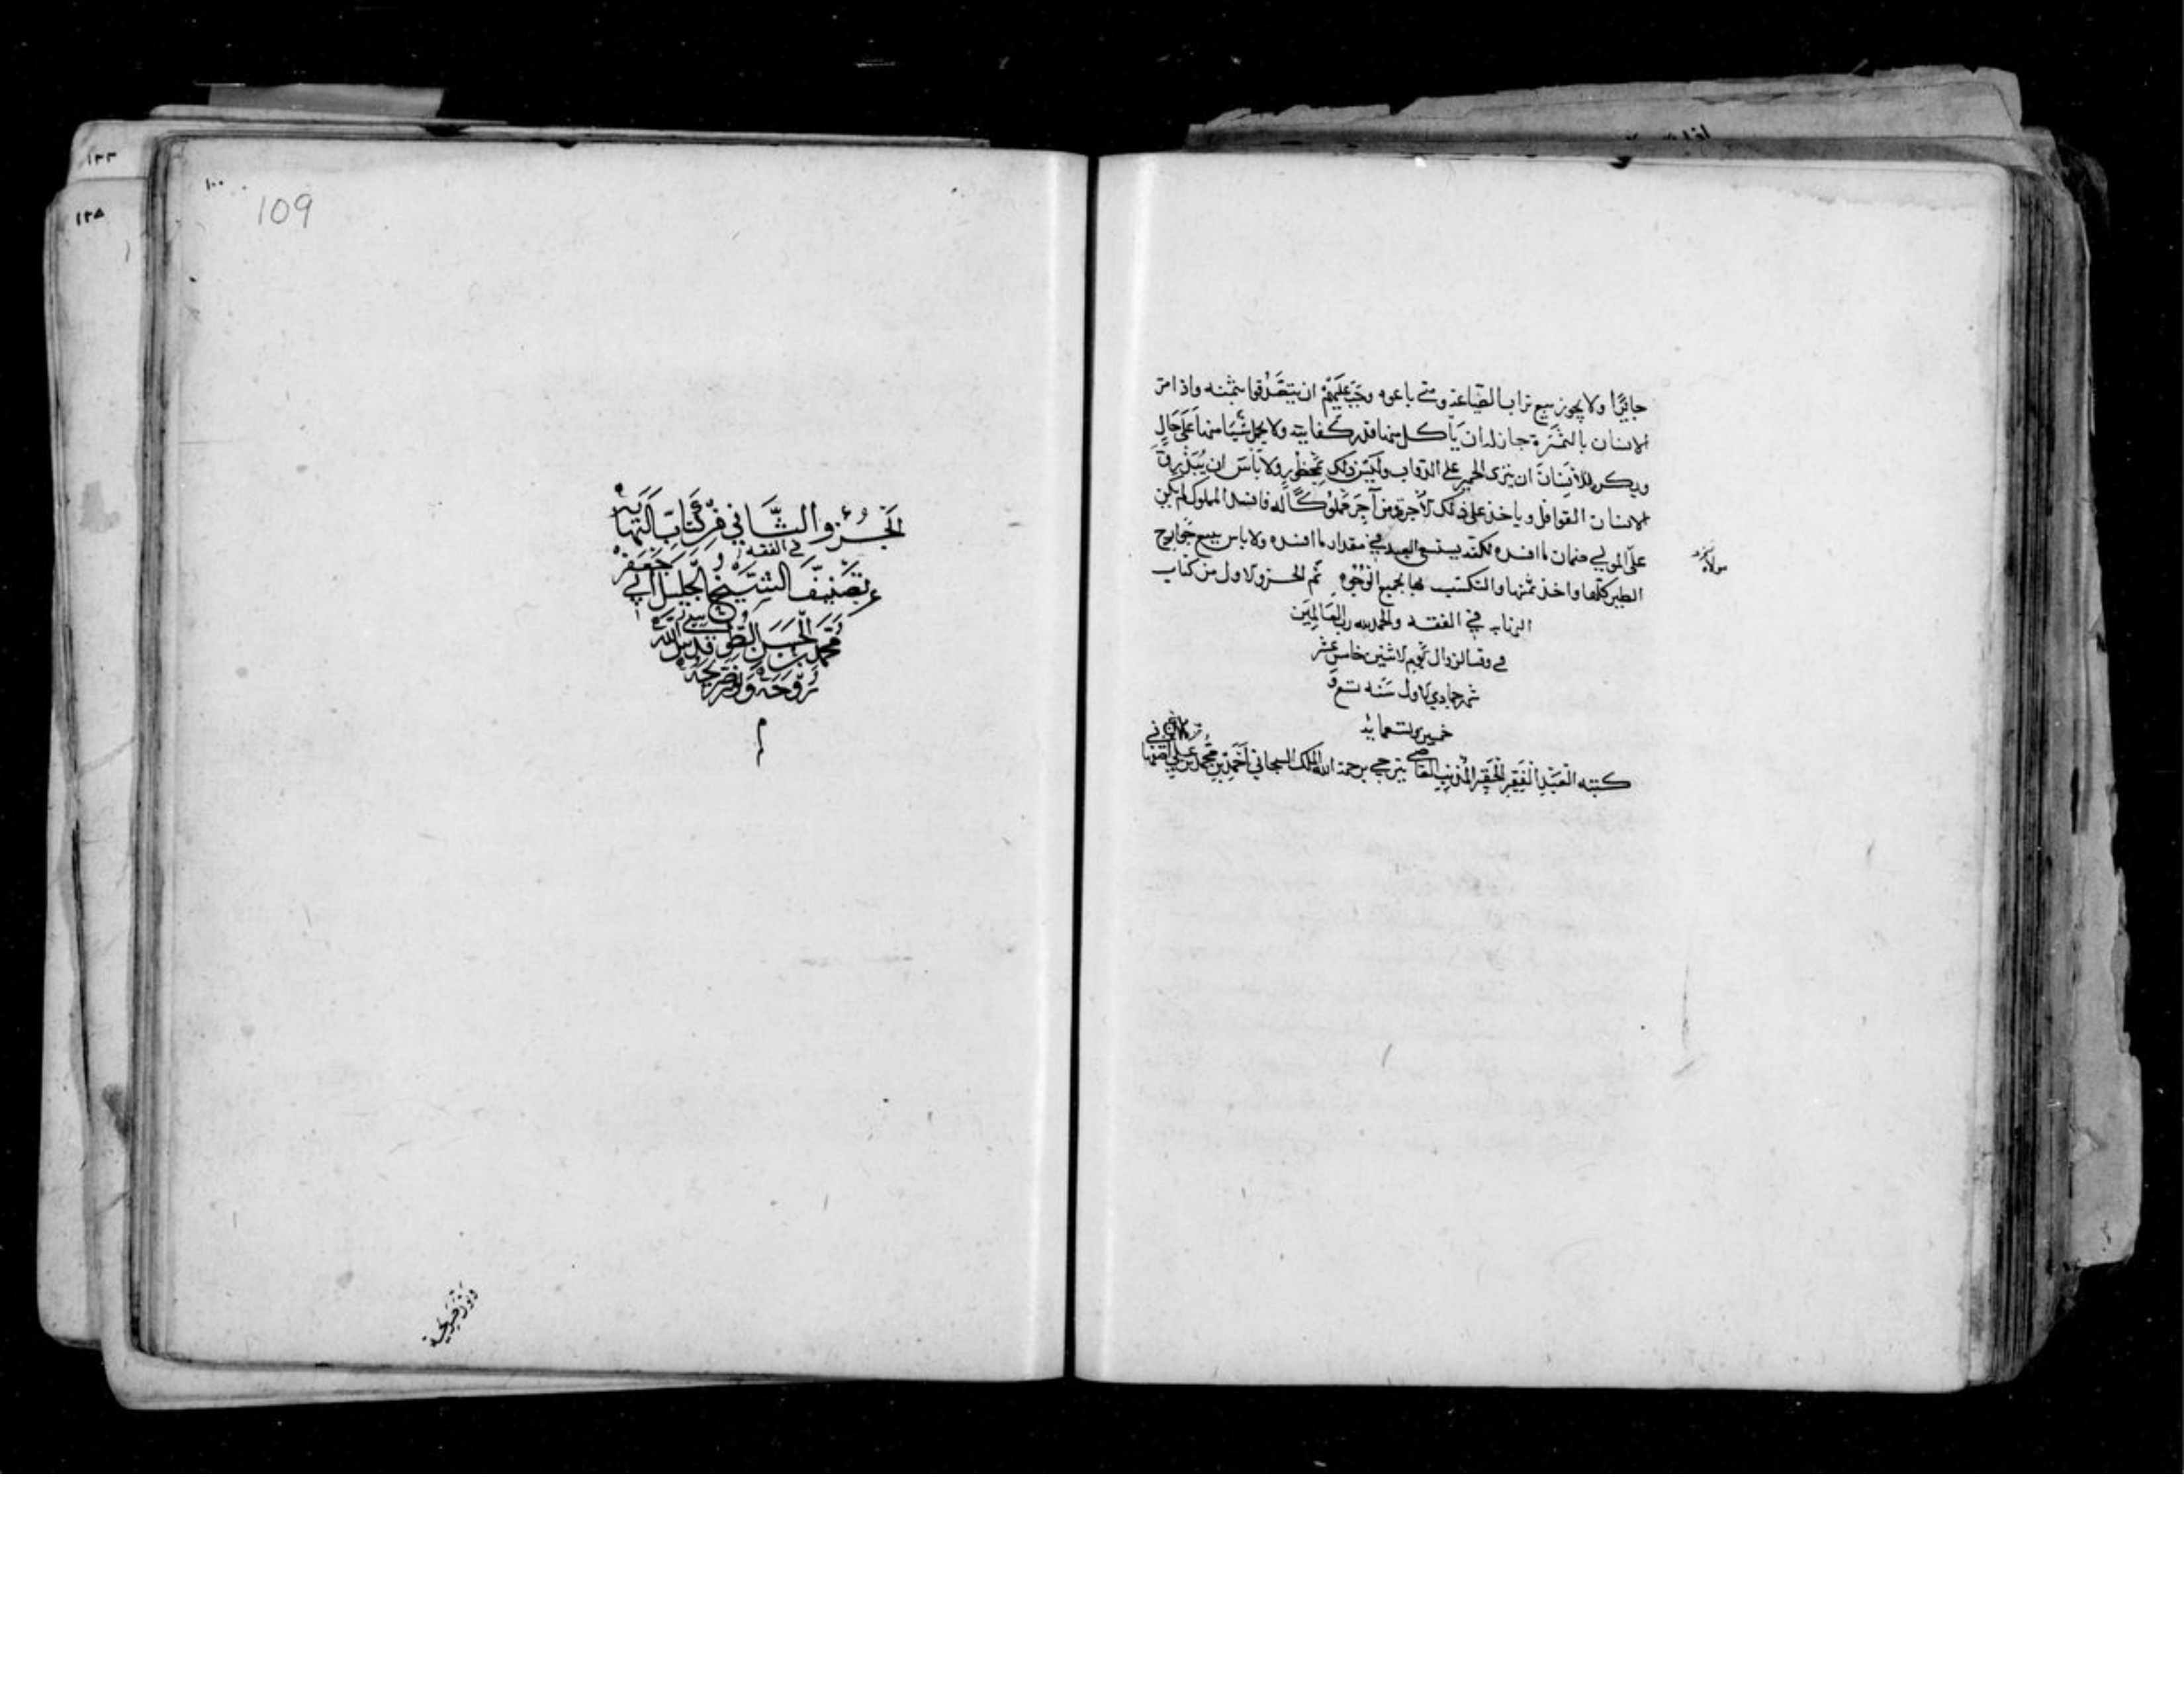 جائزا ولا يجوز بيع تراب الصياغة ومتى باعوه وجب عليهم ان يتصدقوا بثمنه واذا مر
الانسان بالثمرة جاز له ان يأكل منها قدر كفايته ولا يحمل شيئا منها على حال
ويكره للانسان ان ينزى الحمير على الدواب وليس ذلك بمحظور ولا بأس ان يبذرق
الانسان القوافل وياخذ على ذلك الاجر ومن آجر مملوكا له فافسد المملوك لم يكن
على المولى ضمان ما افسده لكنه يستسعى العبد في مقدار ما افسده ولا باس ببيع جوارح
الطير كلها واخذ ثمنها والتكسب بها بجميع الوجوه تم الجزو الاول من كتاب
النهاية في الفقه والحمد لله رب العالمين
في وقت الزوال يوم الاثنين خامس عشر
شهر جمادي الاول سنه تسع و
خمسين وتسعمايه
كتبه العبد الفقير الحقير المذنب العاصي يترجى برحمة الله الملك السبحاني احمد بن محمد بن علي
١٠٠
109
الجزو الثاني من كتاب النهاية
في الفقه
تصنيف الشيخ الجليل ابي جعفر
محمد بن الحسن الطوسي قدس الله
روحه ونور ضريحه
م
ونور ضريحه
١٢٣
١٢٥